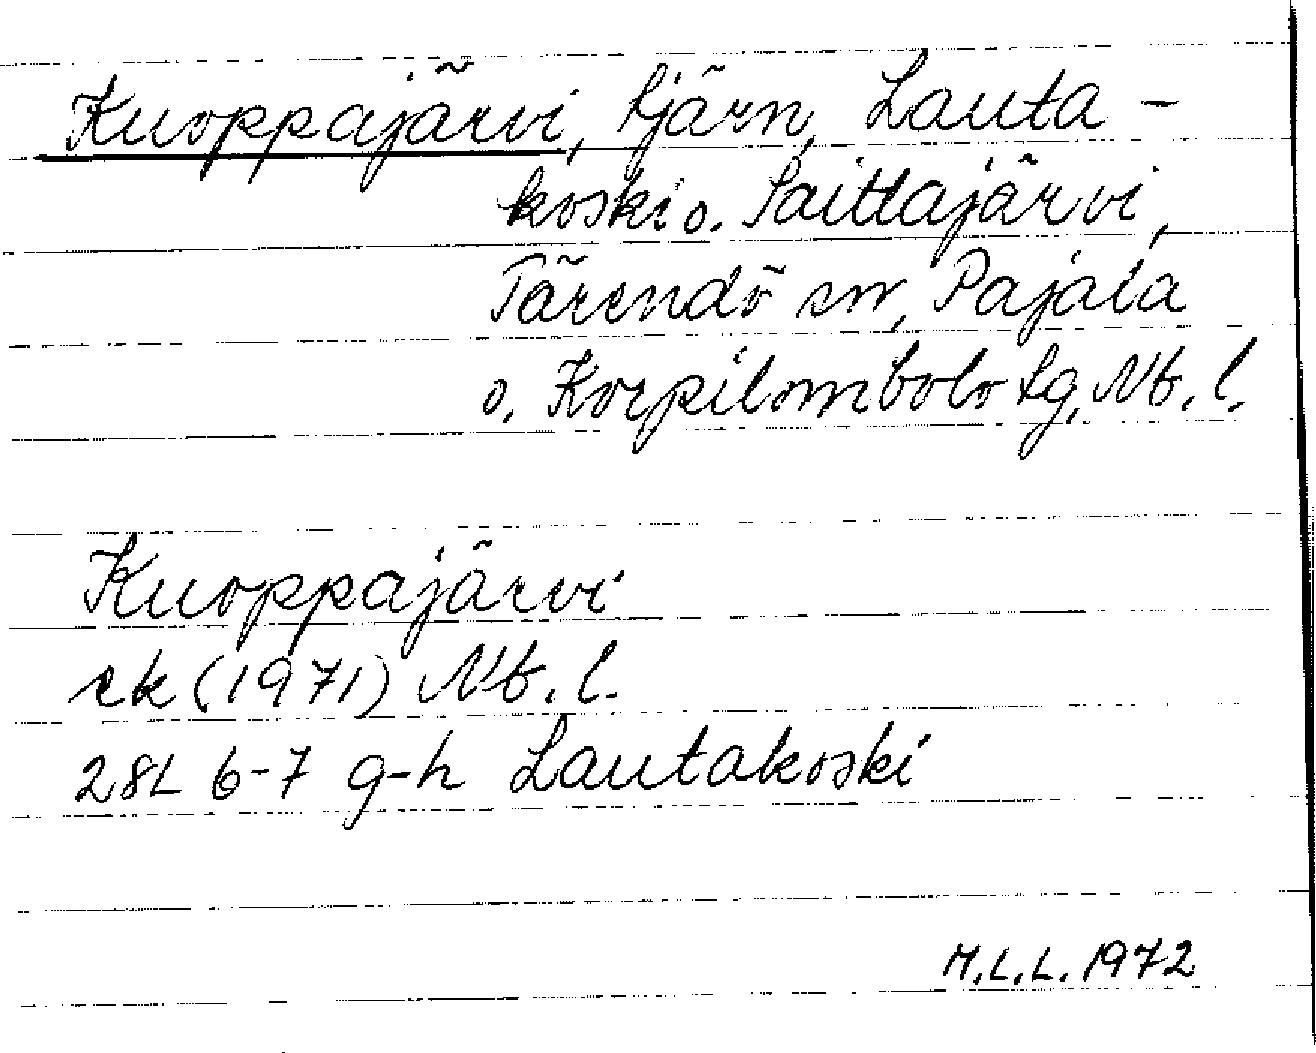 Kuoppajärvi, tjärn, Lauta-
koski o. Saittajärvi,
Tärendö sn, Pajala
o. Korpilombolo tg, Nb. l.
Kuoppajärvi
ek (1971) Nb. l.
28L 6-7 g-h Lautakoski
M.L.L. 1972